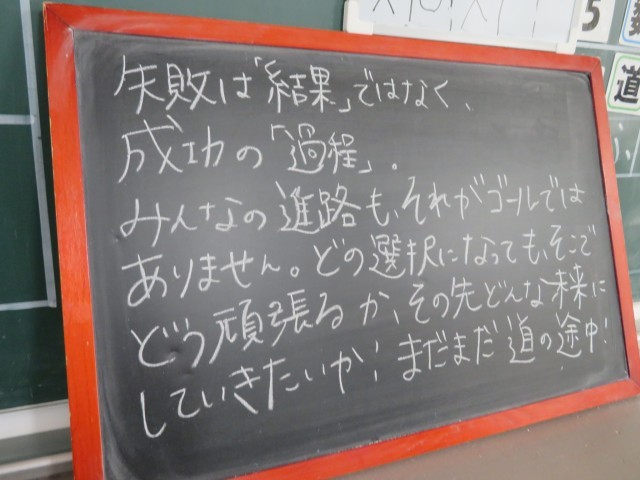 失敗は「結果」ではなく、
成功の「過程」。
みんなの進路も、それがゴールでは
ありません。どの選択になっても、そこで
どう頑張るか、その先どんな未来に
していきたいか！まだまだ道の途中！
5
道